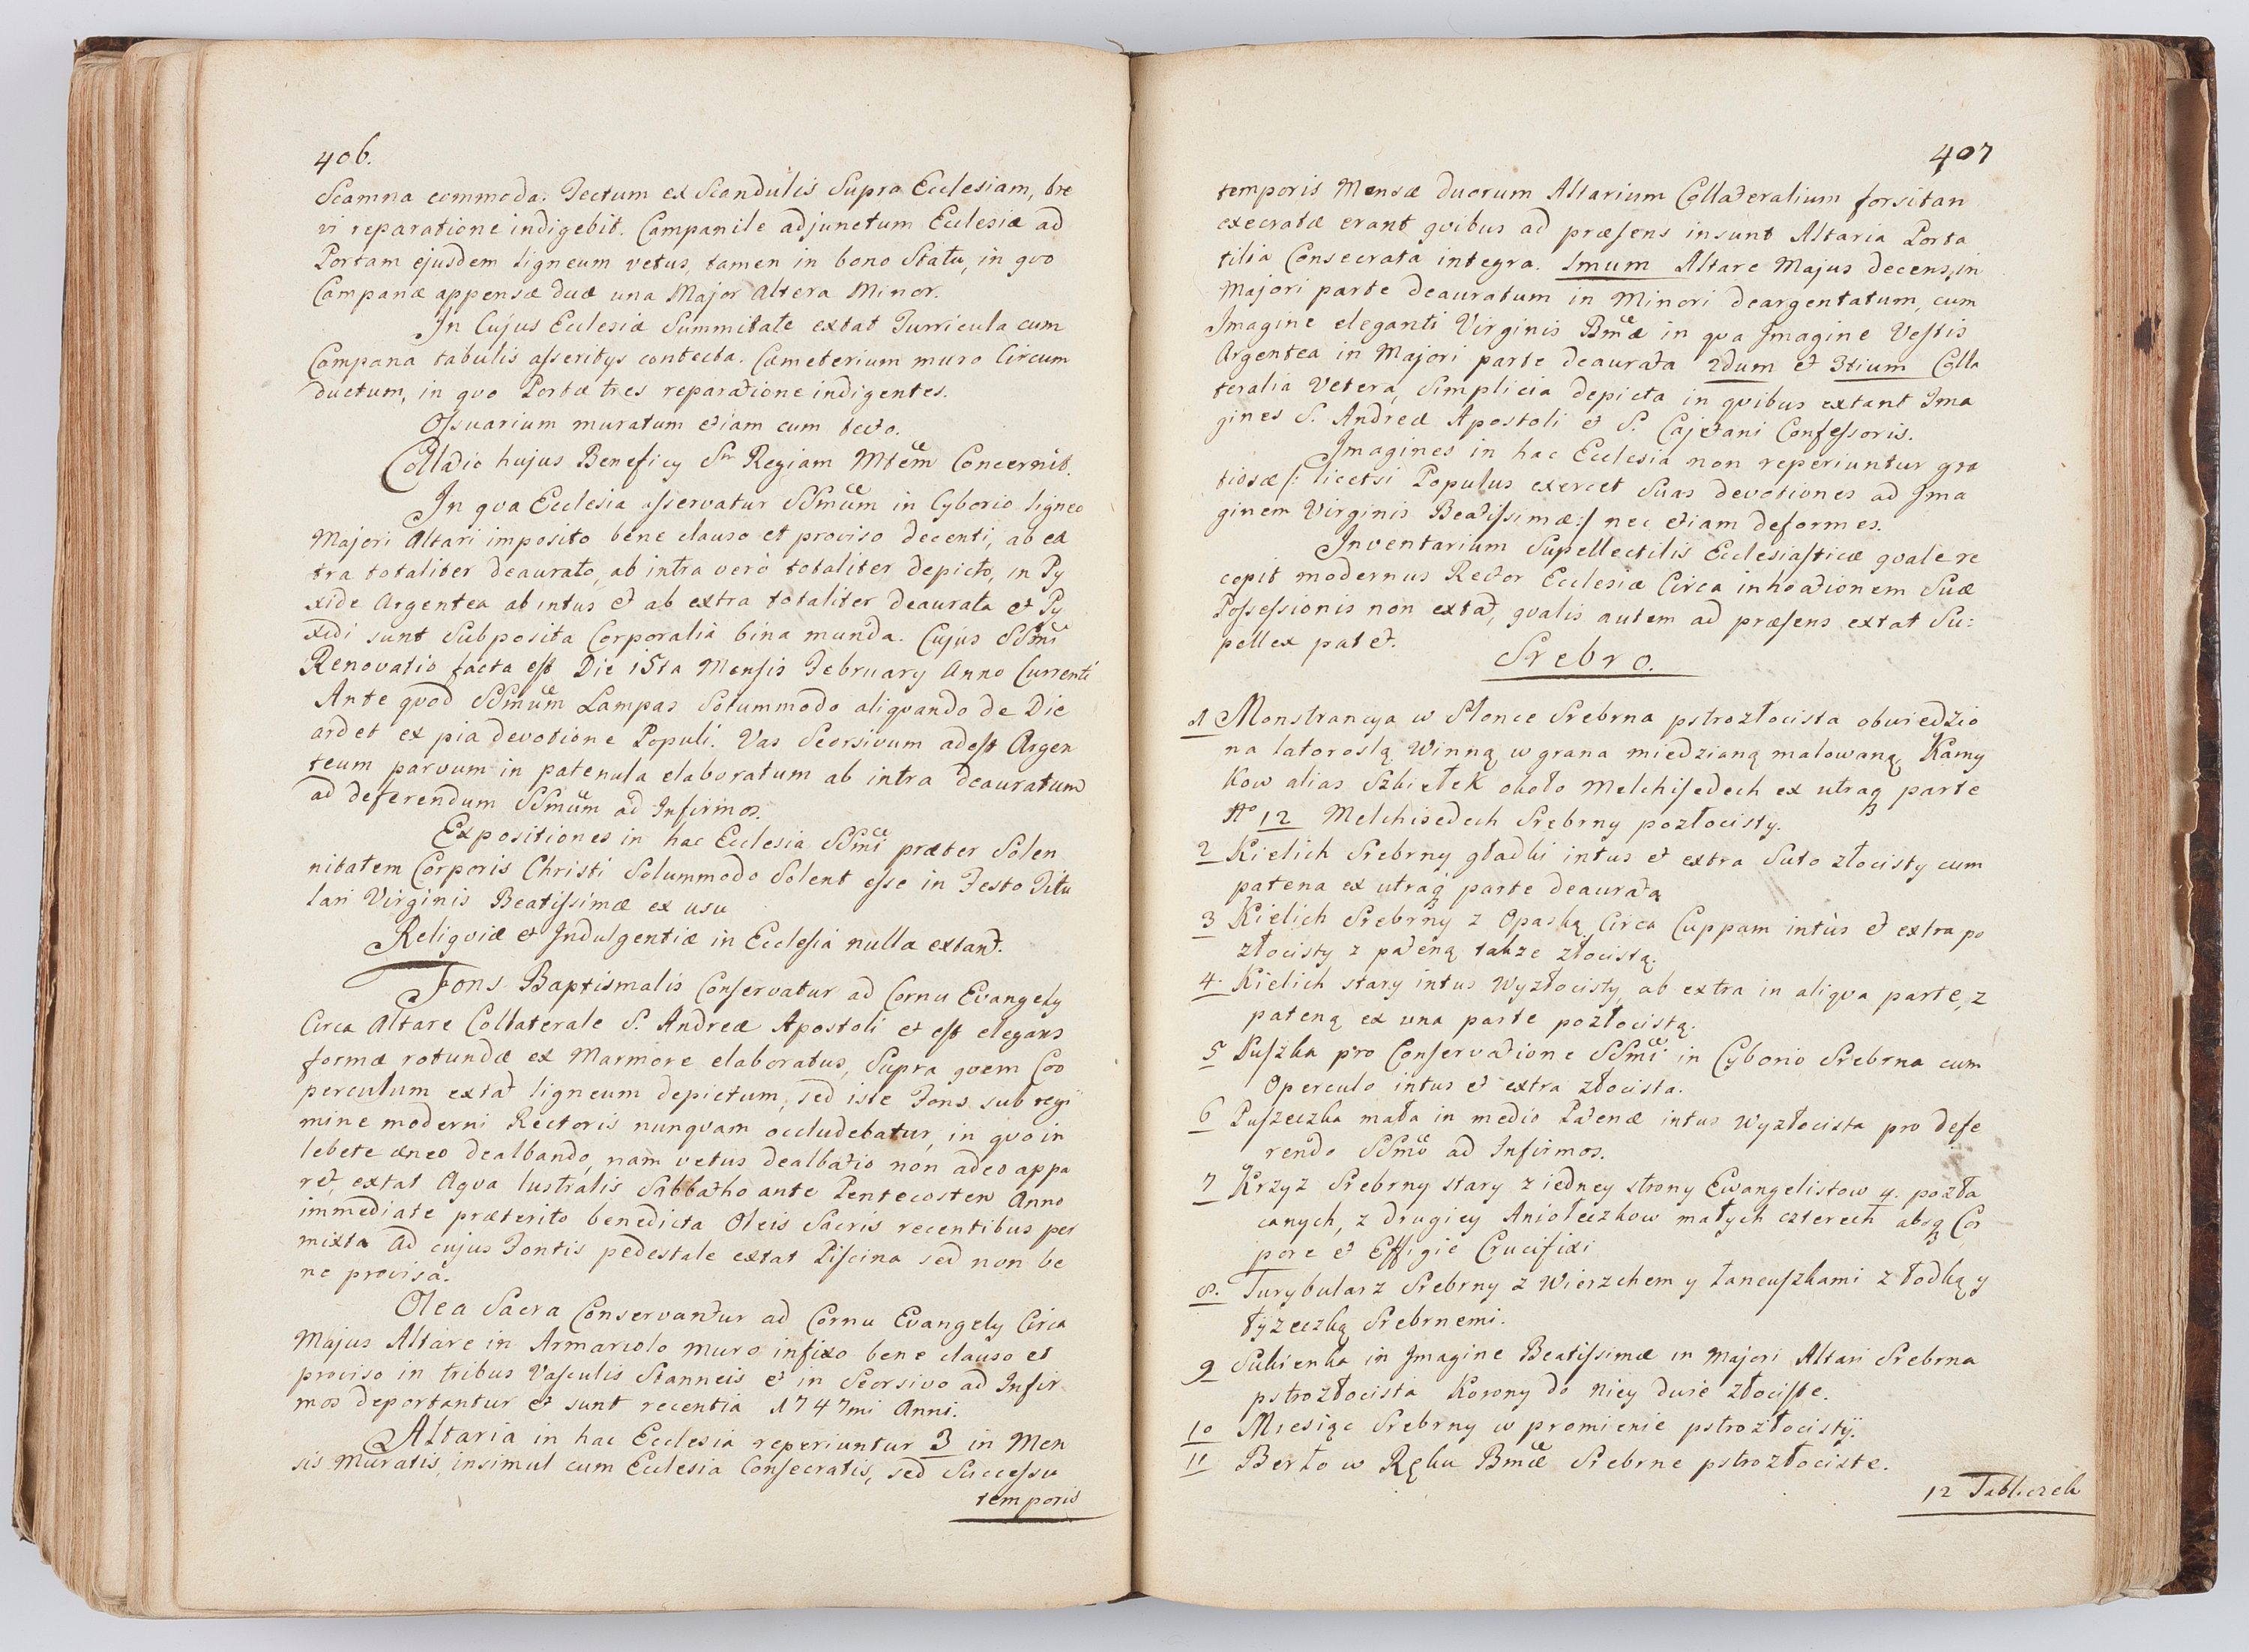 406.
Scamna commoda. Tectum ex Scandulis Supra Ecclesiam, bre
vi reparatione indigebit. Campanile adjunctum Ecclesiæ ad
Portam ejusdem ligneum vetus, tamen in bono Statu, in qvo
Campanæ appensæ duæ una Major altera Minor.
In Cujus Ecclesiæ Summitate extat Turricula cum
Campana tabulis asseritys contecta. Cæmeterium muro Circum
ductum, in qvo Portæ tres reparatione indigentes.
Ossuarium muratum etiam cum tecto.
Collatio hujus Beneficy Sm Regiam Mtem Concernit.
In qva Ecclesia asservatur SSmum in Cyborio ligneo
Majori Altari imposito bene clauso et proviso decenti, ab ex
tra totaliter deaurato, ab intra verò totaliter depicto, in Py
xide Argentea ab intus et ab extra totaliter deaurata et Py
xidi sunt Subposita Corporalia bina munda. Cujus SSmi
Renovatio facta est Die 15ta Mensis February Anno Currenti
Ante qvod SSmum Lampas Solummodo aliqvando de Die
ardet ex pia devotione Populi. Vas Seorsivum adest Argen
teum parvum in patenula elaboratum ab intra deauratum
ad deferendum SSmum ad Infirmos.
Expositiones in hac Ecclesia SSmi præter Solen
nitatem Corporis Christi Solummodo Solent esse in Festo Titu
lari Virginis Beatissimæ ex usu
Reliqviæ et Indulgentiæ in Ecclesia nulla extant.
Fons Baptismalis Conservatur ad Cornu Evangely
Circa Altare Collaterale S. Andreæ Apostoli et est elegans
formæ rotundæ ex Marmore elaboratus, Supra qvem Coo
perculum extat ligneum depictum, sed iste Fons sub regi
mine moderni Rectoris nunqvam occludebatur, in qvo in
lebete æneo dealbando, nam vetus dealbatio non adeo appa
ret, extat Aqva lustralis Sabbatho ante Pentecosten Anno
immediate præterito benedicta Oleis Sacris recentibus per
mixta Ad cujus Fontis pedestale extat Piscina sed non be
ne provisa.
Olea Sacra Conservantur ad Cornu Evangely Circa
Majus Altare in Armariolo muro infixo bene clauso et
proviso in tribus Vasculis Stanneis et in Seorsivo ad Infir
mos deportantur et sunt recentia 1747mi Anni.
Altaria in hac Ecclesia reperiuntur 3 in Men
sis Muratis, insimul cum Ecclesia Consecratis, sed Successu
temporis
407
temporis Mensæ duorum Altarium Collateralium forsitan
execratæ erant qvibus ad præsens insunt Altaria Porta
tilia Consecrata integra. 1mum Altare Majus decens, in
Majori parte deauratum in Minori deargentatum, cum
Imagine eleganti Virginis Bmæ in qva Imagine Vestis
Argentea in Majori parte deaurata 2dum et 3tium Colla
teralia Vetera, Simplicia depicta in qvibus extant Ima
gines S. Andreæ Apostoli et S. Cajetani Confessoris.
Imagines in hac Ecclesia non reperiuntur gra
tiosæ /: licetsi Populus exercet Suas devotiones ad Ima
ginem Virginis Beatissimæ :/ nec etiam deformes.
Inventarium Supellectilis Ecclesiasticæ qvale re
cepit modernus Rector Ecclesiæ Circa inhoationem Suæ
Possessionis non extat, qvalis autem ad præsens extat Su:
pellex patet.
Srebro.
1 Monstrancya w Słonce Srebrna pstrozłocista obwiedzio
na latoroslą Winną w grana miedzianą malowaną Kamy
kow alias Szkiełek około Melchisedech ex utraq parte
No 12 Melchisedech Srebrny pozłocisty.
2 Kielich Srebrny gładki intus et extra Suto złocisty cum
patena ex utraq parte deaurata
3 Kielich Srebrny z Opaską Circa Cuppam intùs et extra po
złocisty z pateną takze złocistą.
4. Kielich stary intus Wyzłocisty, ab extra in aliqva parte, z
pateną ex una parte pozłocistą.
5 Puszka pro Conservatione SSmi in Cyborio Srebrna cum
Operculo intus et extra złocista.
6 Puszeczka mała in medio Patenæ intus Wyzłocista pro defe
rendo SSmo ad Infirmos.
7 Krzyz Srebrny stary z iedney strony Ewangelistow 4. pozła
canych, z drugiey Aniołeczkow małych czterech absq Cor
pore et Effigie Crucifixi
8. Turybularz Srebrny z Wierzchem y łancuszkami z łodką y
łyzeczką Srebrnemi.
9 Sukienka in Imagine Beatissimæ in Majori Altari Srebrna
pstrozłocista Korony do niey dwie złociste.
10 Miesiąc Srebrny w promienie pstrozłocisty.
11 Berło w Ręku Bmæ Srebrne pstrozłociste.
12 Tabliczek